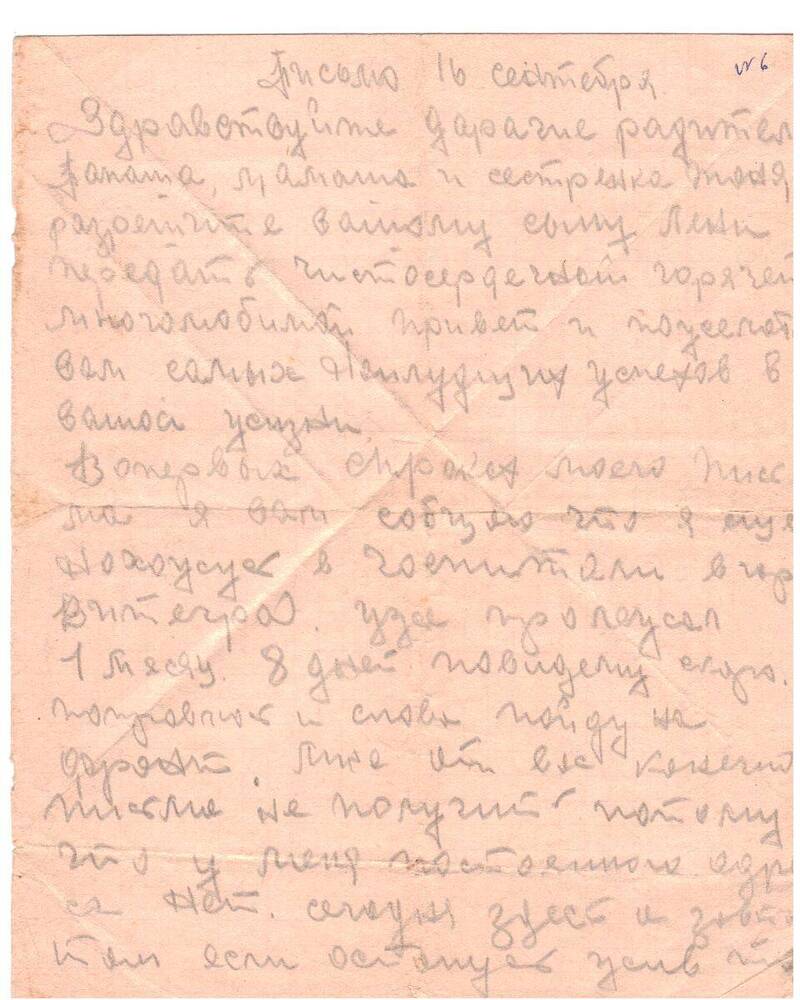 Письмо 16 сентября. №6
Здравствуйте дарагие радител
Папаша, мамаша и сестренка Тоня,
разрешите вашому сыну Лени
передать чистосердечный горячей
многолюбимой привет и пожелат
вам самых Наилудших успехов в
вашой жизни
Вопервых строках моего Пис
ма я вам собщяю что я еще
Нохожус в госпитали в гор
Витегра. уже пролежал
1 месяц. 8 дней повидему скоро.
поправлюс и снова пойду на
фронт. Мне от вас конечно
письма не получить потому
что у меня постоенного адре
са Нет. сегодня здест а завт
там если останус жив то